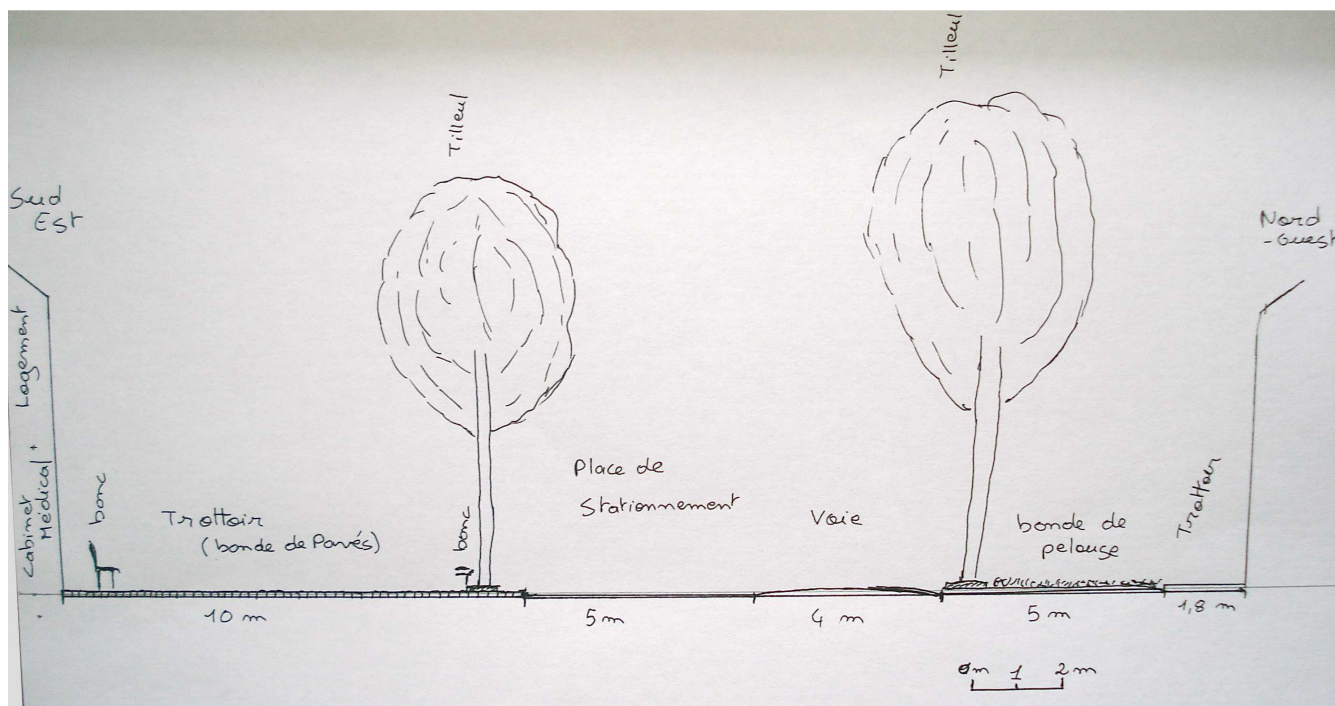 Tilleul
Tilleul
Sud
Est
Nord
-Ouest
Cabinet
Médical + Logement
banc
Trottoir
(bande de Pavés)
banc
Place de
Stationnement
Voie
bande de
pelouse
Trottoir
10 m
5 m
4 m
5 m
1,8 m
0m 1 2 m